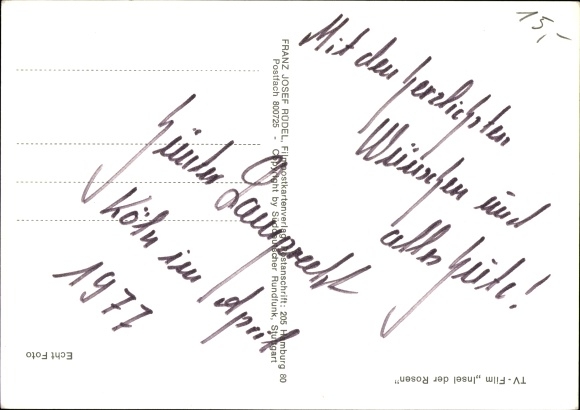 15,-
Mit den herzlichsten
Wünschen und
alles Gute!
Günter Lamprecht
Köln im April
1977
FRANZ JOSEF RÜDEL, Filmpostkartenverlag, Postanschrift: 205 Hamburg 80
Postfach 800725 - Copyright by Süddeutscher Rundfunk, Stuttgart
Echt Foto
TV-Film „Insel der Rosen"